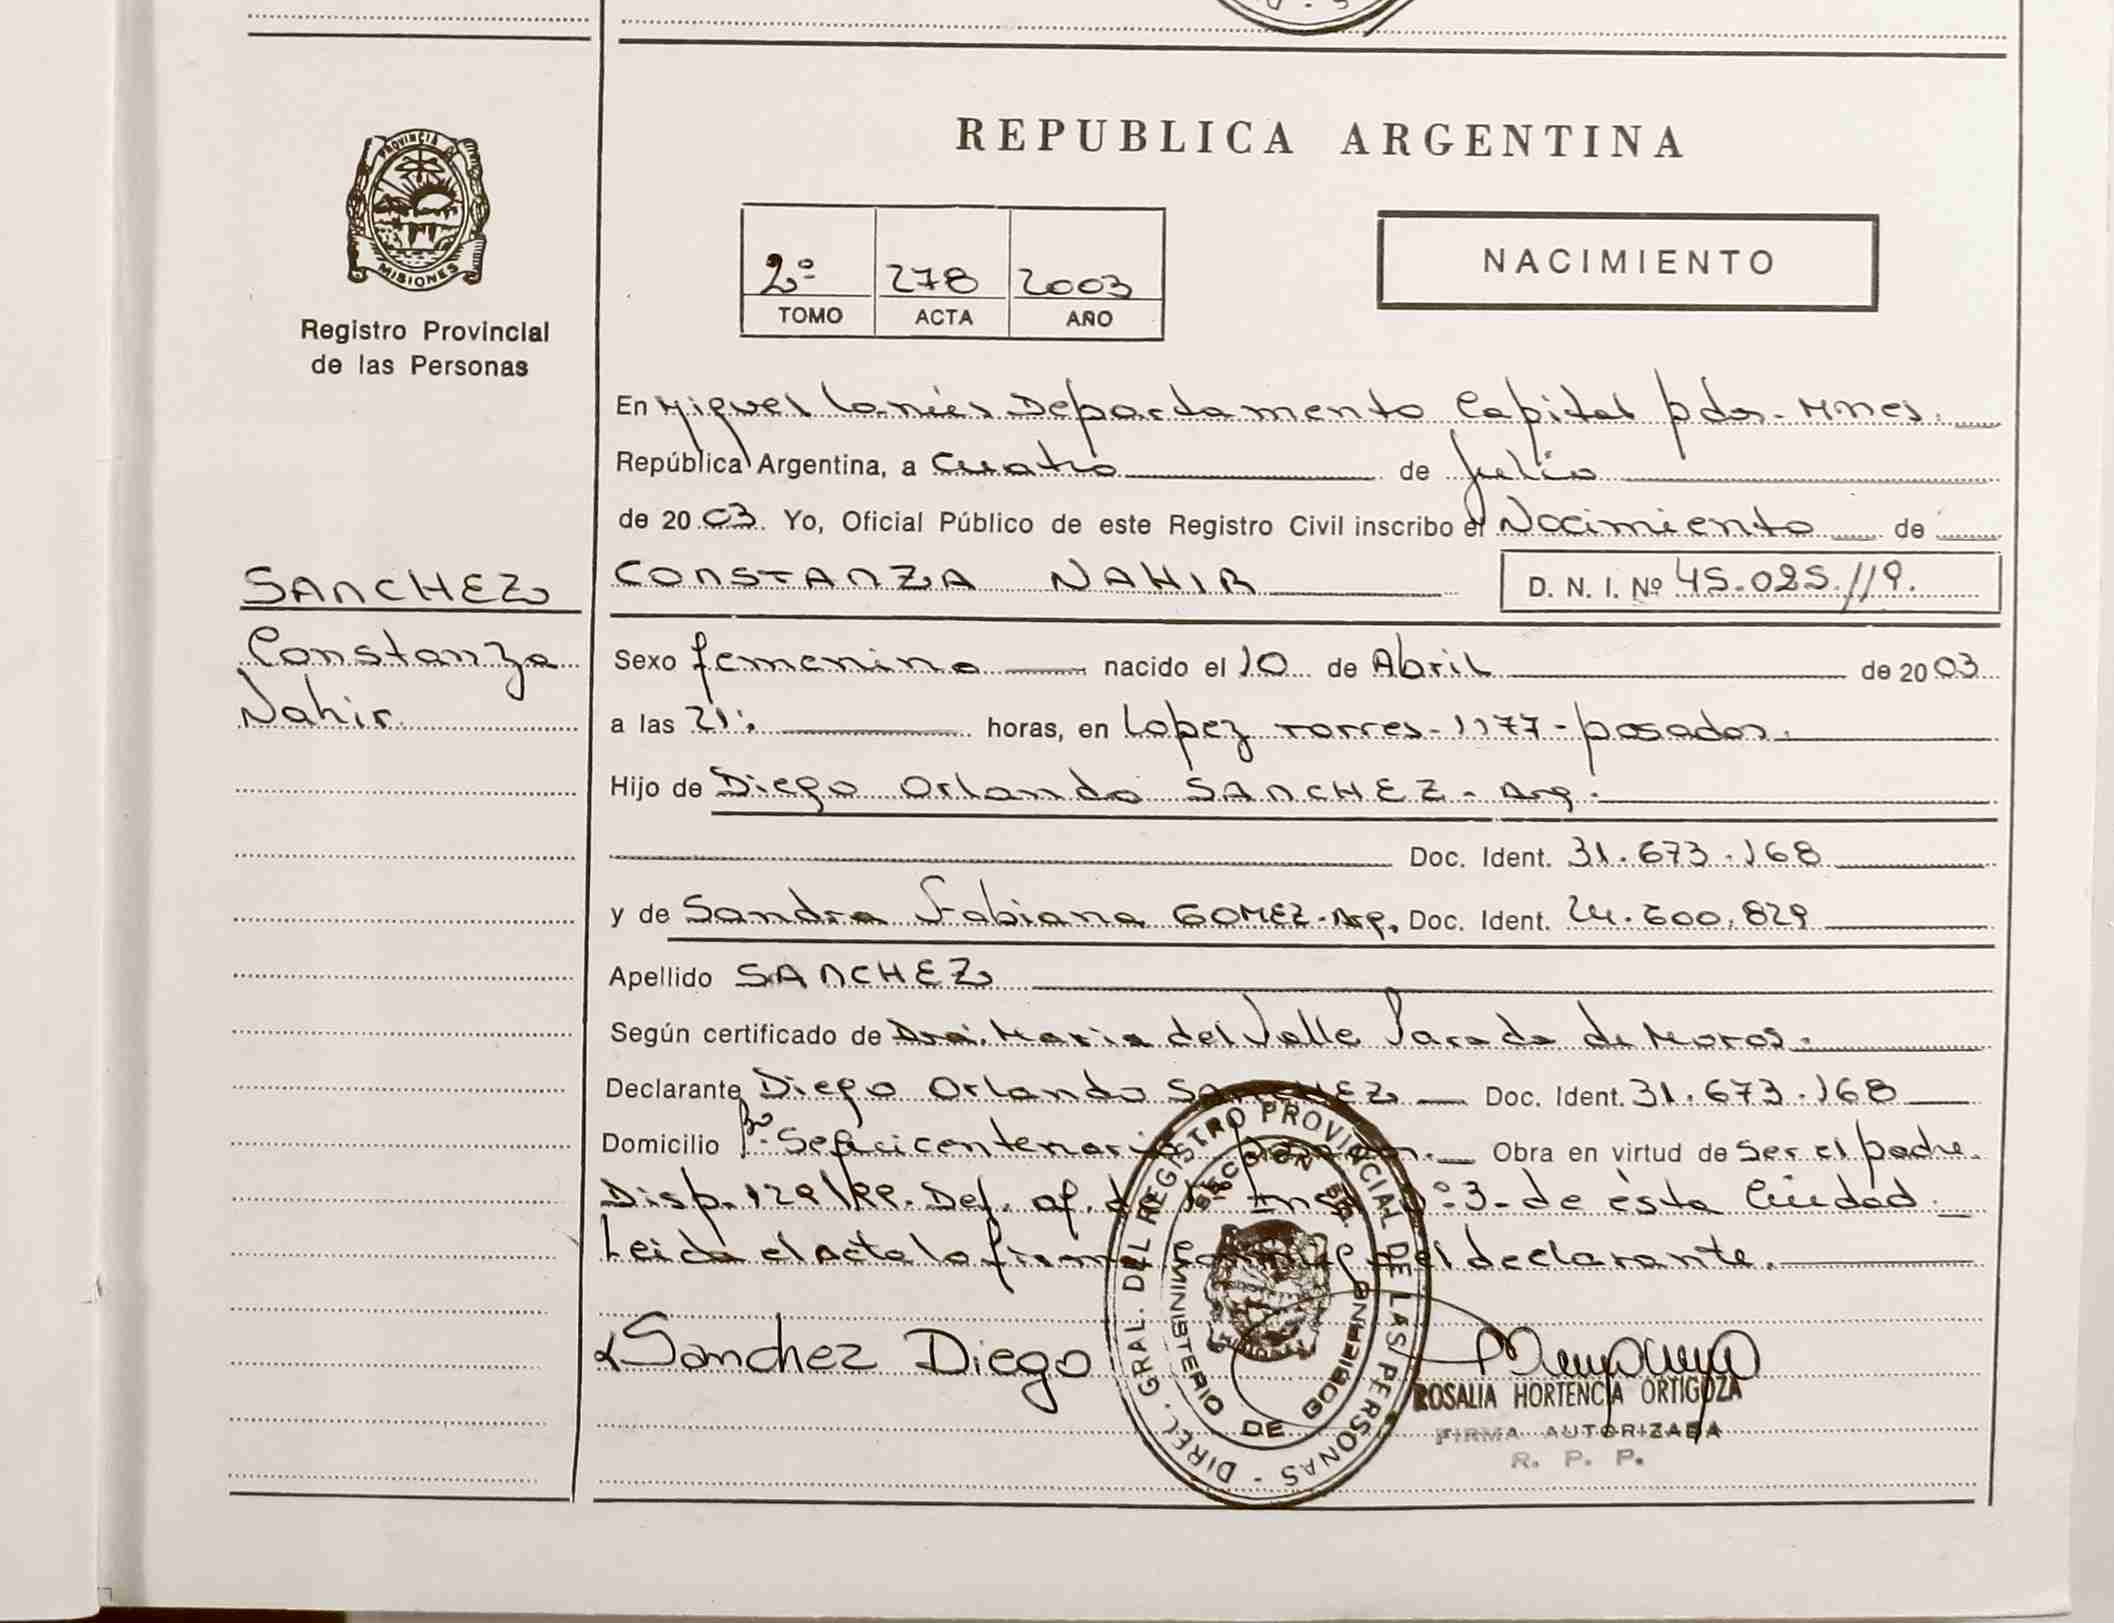 REPUBLICA ARGENTINA
PROVINCIA DE
MISIONES
Registro Provincial
de las Personas
2º 278 2003
TOMO ACTA AÑO
NACIMIENTO
En Miguel Lanús Departamento Capital pdas-Mnes.
República Argentina, a cuatro de julio
de 2003. Yo, Oficial Público de este Registro Civil inscribo el Nacimiento de
SANCHEZ
Constanza
Nahir
CONSTANZA NAHIR D. N. I. Nº 45.025.119.
Sexo femenino nacido el 10 de Abril de 2003
a las 21: horas, en Lopez Torres-1177-posadas.
Hijo de Diego Orlando SANCHEZ-Arg.
Doc. Ident. 31.673.168
y de Sandra Fabiana GOMEZ-Arg. Doc. Ident. 24.600.829
Apellido SANCHEZ
Según certificado de Dra. Maria del Valle Parada de Moros.
Declarante Diego Orlando SANCHEZ Doc. Ident. 31.673.168
Domicilio Bº Obra en virtud de ser el padre.
Disp. 129/99. Def. of. de º3-de ésta Ciudad.
Leida el acta la firma el declarante.
Sanchez Diego
DIREC. GRAL. DEL REGISTRO PROVINCIAL DE LAS PERSONAS
MINISTERIO DE GOBIERNO
ROSALIA HORTENCIA ORTIGOZA
FIRMA AUTORIZADA
R. P. P.